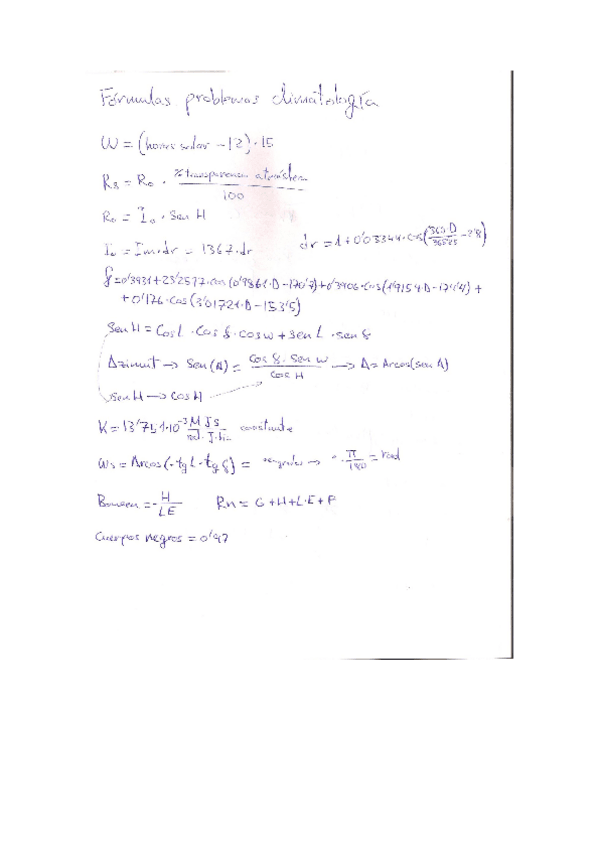 Fórmulas problemas climatología
W = (hora solar - 12) · 15
Rs = Ro · % transparencia atmósfera / 100
Ro = Io · sen H
Io = Im · dr = 1367 · dr    dr = 1 + 0'03344 · cos(360 D / 365'25 - 2'8)
δ = 0'3931 + 23'2577 · cos(0'9861 · D - 170'7) + 0'3906 · cos(1'9154 · D - 174'4) +
+ 0'176 · cos(3'01721 · D - 153'5)
sen H = Cos L · Cos δ · cos w + sen L · sen δ
Azimut → sen(A) = cos δ · sen w / cos H → A = Arcos(sen A)
sen H → cos H
K = 13'751 · 10⁻³ MJ s / rad · J · día constante
Ws = Arcos(-tg L · tg δ) = → · π / 180 = rad
Bowen = H / LE    Rn = G + H + L · E + P
Cuerpos negros = 0'97